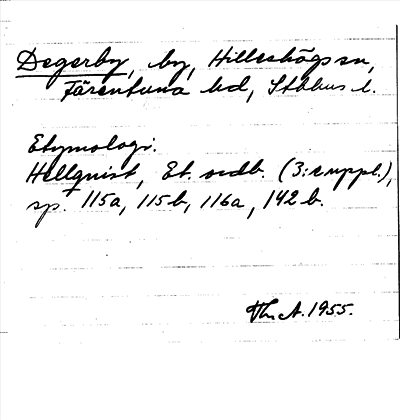 Degerby, by, Hilleshögs sn,
Färentuna hd, Sthlms l.
Etymologi.
Hellquist, Et. ordb. (3:e uppl.),
sp. 115a, 115b, 116a, 142b.
A. 1955.